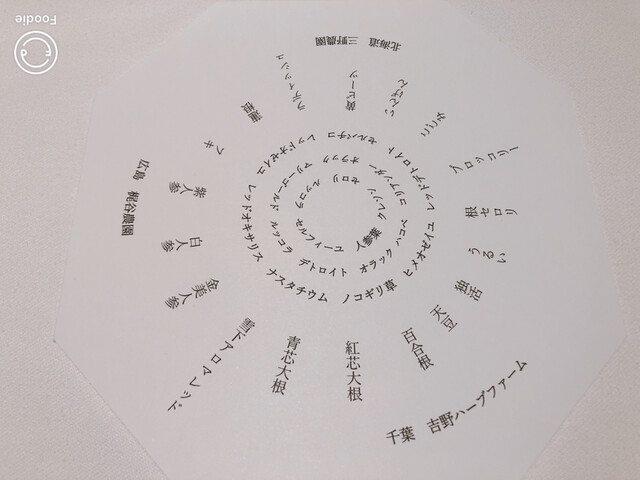 Foodie
北海道 三野農園
広島 梶谷農園
千葉 吉野ハーブファーム
ラディッシュ
黄ビーツ
いんげん
こごみ
ブロッコリー
根セロリ
うるい
独活
天豆
百合根
紅芯大根
青芯大根
雪下アロマレッド
金美人参
白人参
紫人参
フキ
蓮根
セルバチコ
レッドオゼイユ
レッドオキサリス
ナスタチウム
ノコギリ草
ヒメオゼイユ
レッドデトロイト
オラック
マリーゴールド
ルッコラ
デトロイト
オラック
ハコベ
コリアンダー
セロリ
ルッコラ
セルフィーユ
人参葉
クレソン